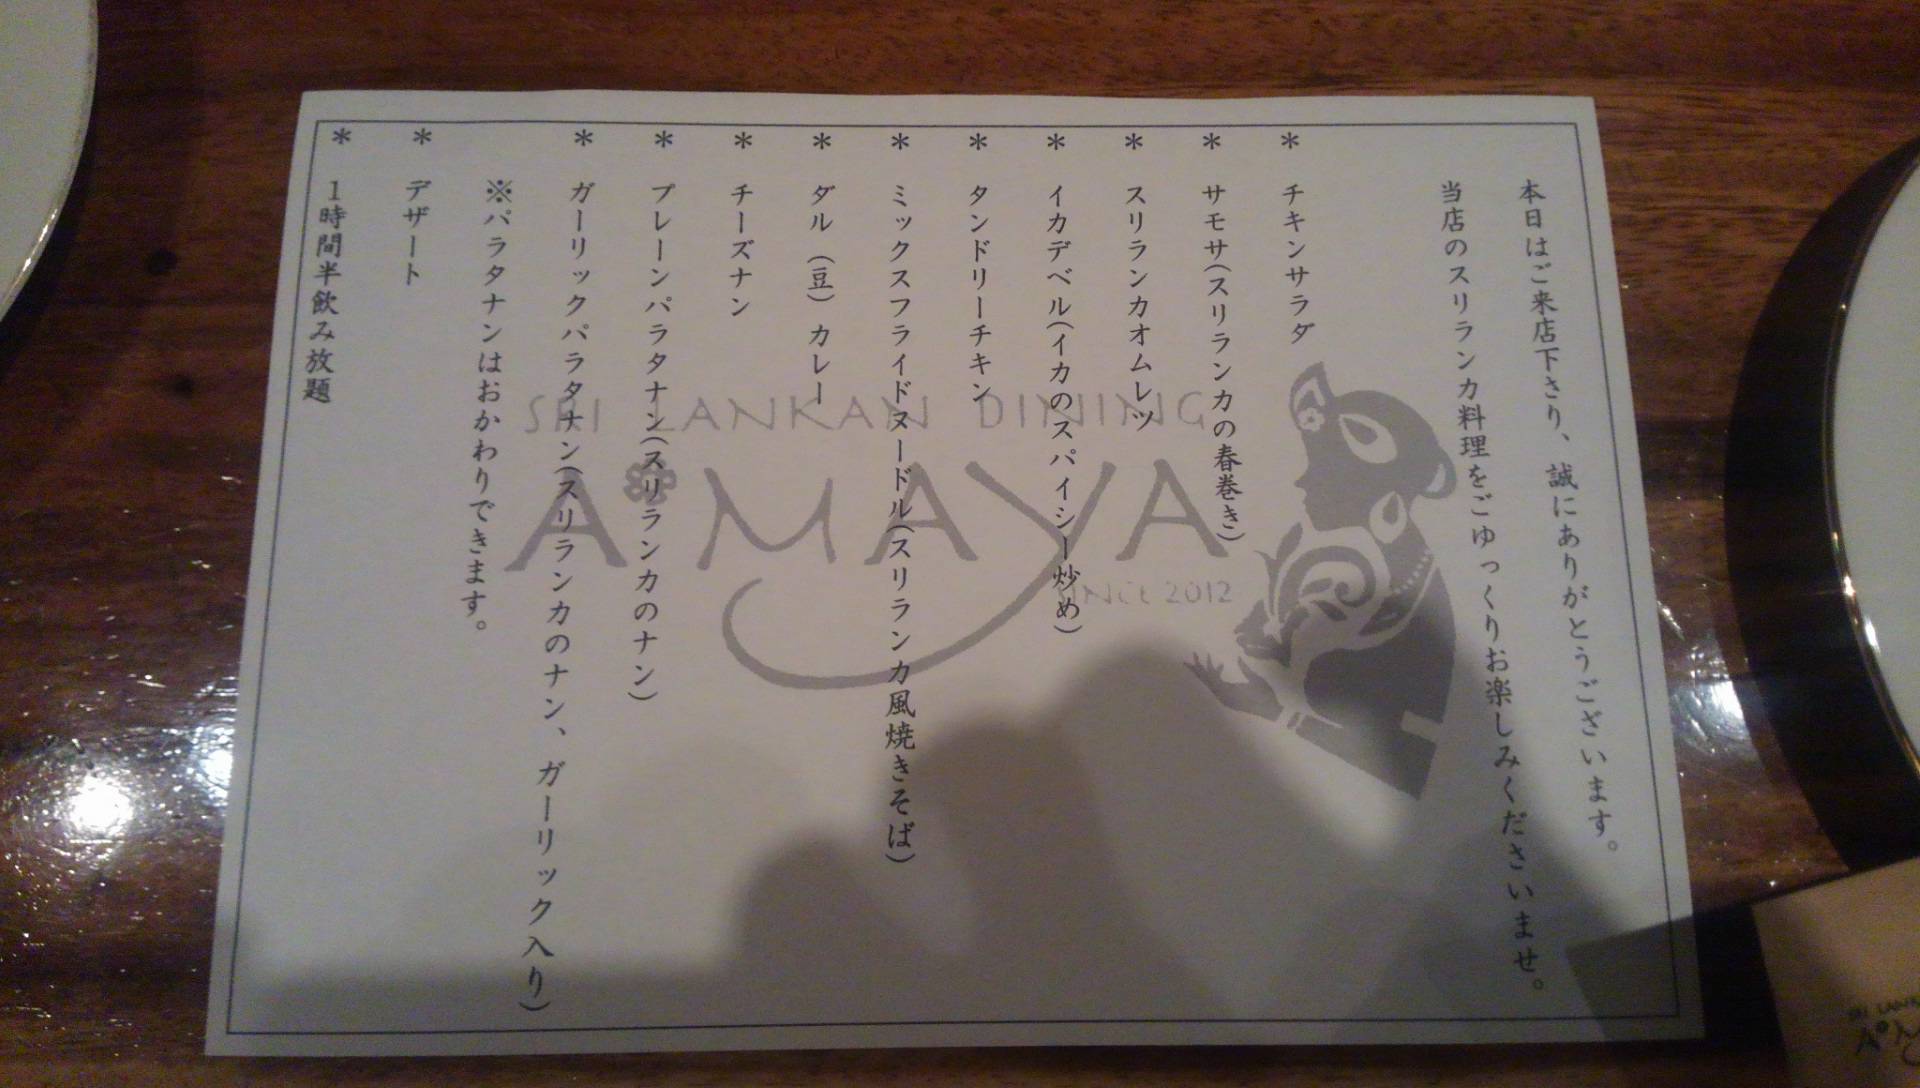 本日はご来店下さり、誠にありがとうございます。
当店のスリランカ料理をごゆっくりお楽しみくださいませ。
* チキンサラダ
* サモサ(スリランカの春巻き)
* スリランカオムレツ
* イカデベル(イカのスパイシー炒め)
* タンドリーチキン
* ミックスフライドヌードル(スリランカ風焼きそば)
* ダル(豆)カレー
* チーズナン
* プレーンパラタナン(スリランカのナン)
* ガーリックパラタナン(スリランカのナン、ガーリック入り)
※パラタナンはおかわりできます。
* デザート
* 1時間半飲み放題
SRI LANKAN DINING
AMAYA
SINCE 2012